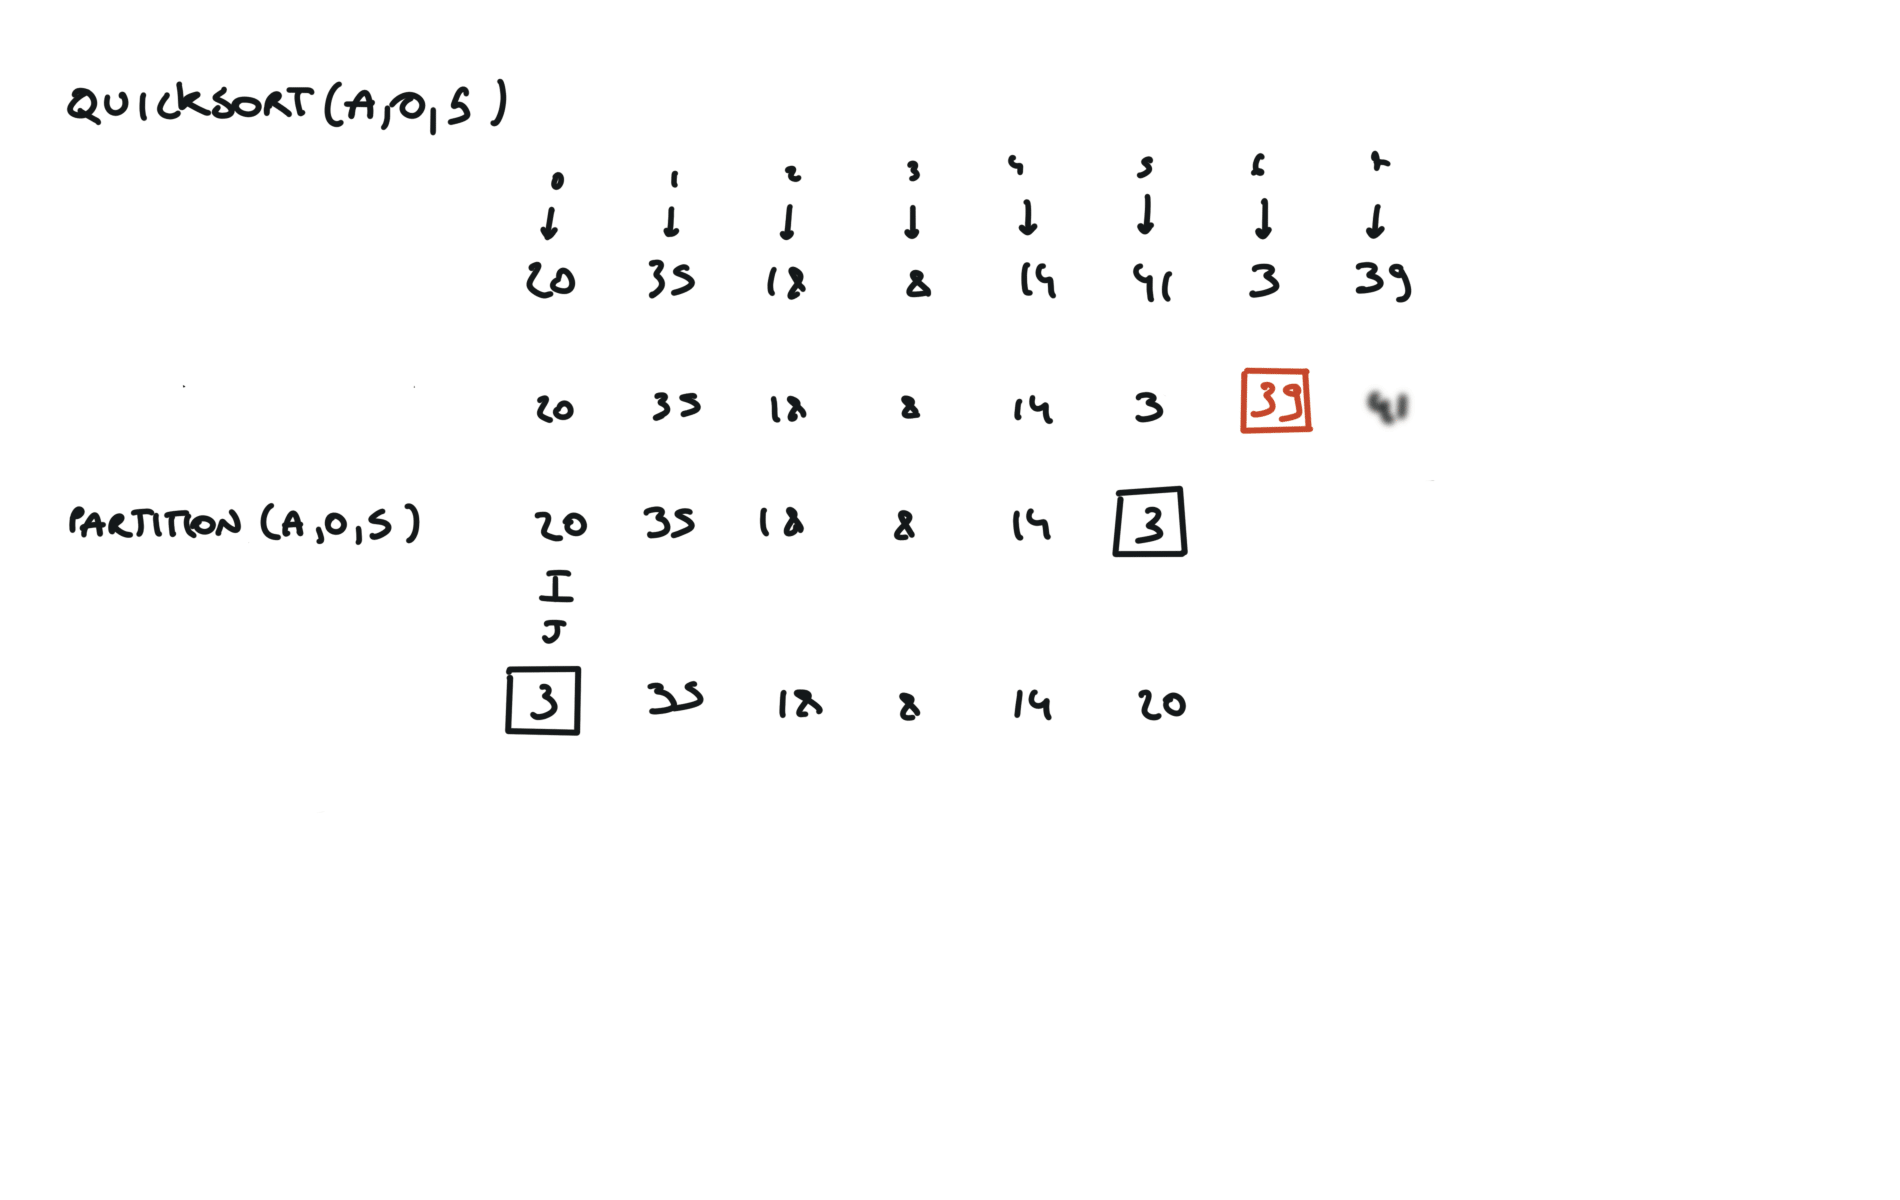 QUICKSORT(A,0,5)
0 1 2 3 4 5 6 7
20 35 18 8 14 41 3 39
20 35 18 8 14 3 39 41
PARTITION (A,0,5) 20 35 18 8 14 3
I
J
3 35 18 8 14 20